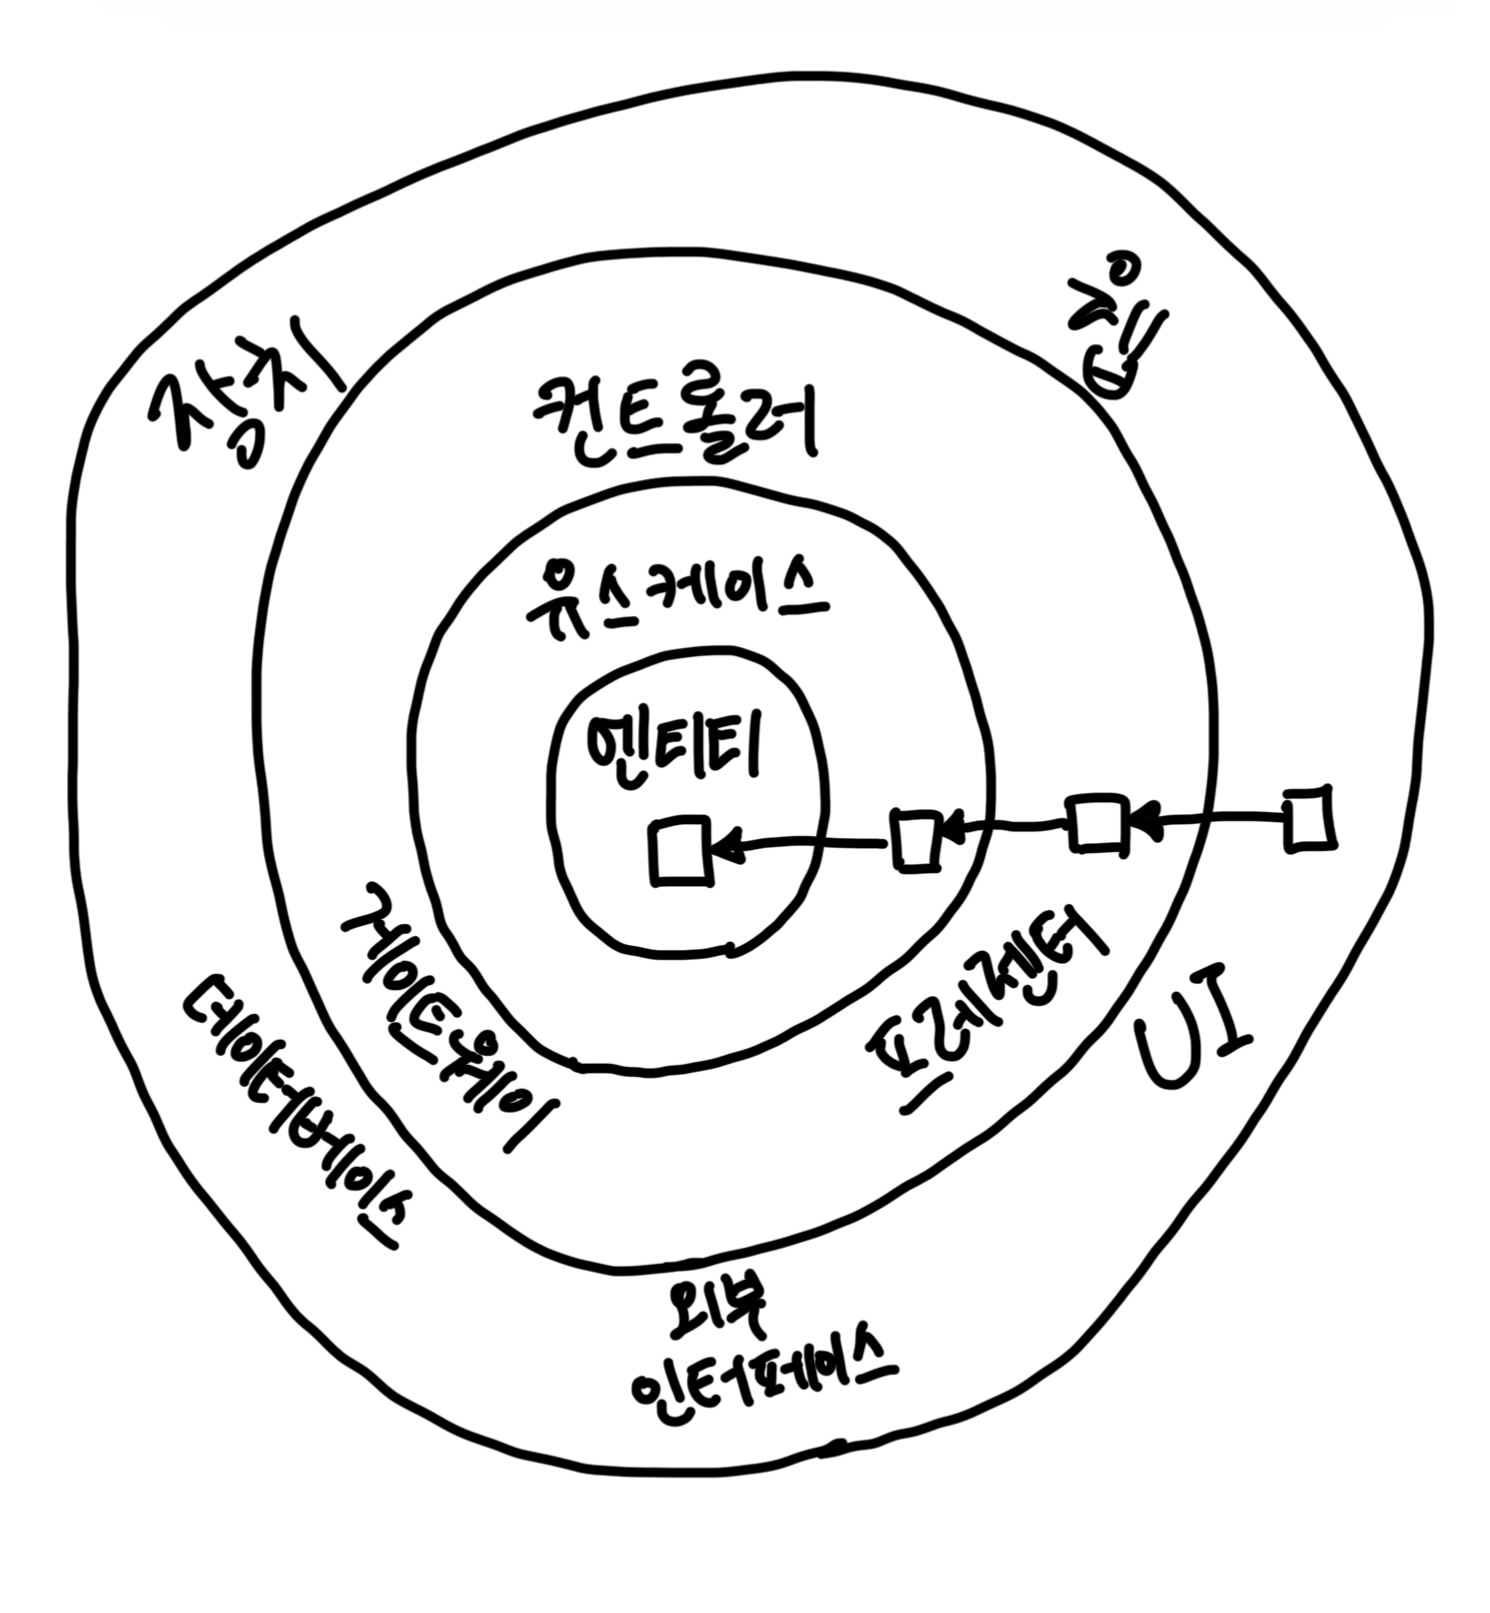 장치
웹
컨트롤러
유스케이스
엔티티
게이트웨이
프레젠터
데이터베이스
UI
외부
인터페이스